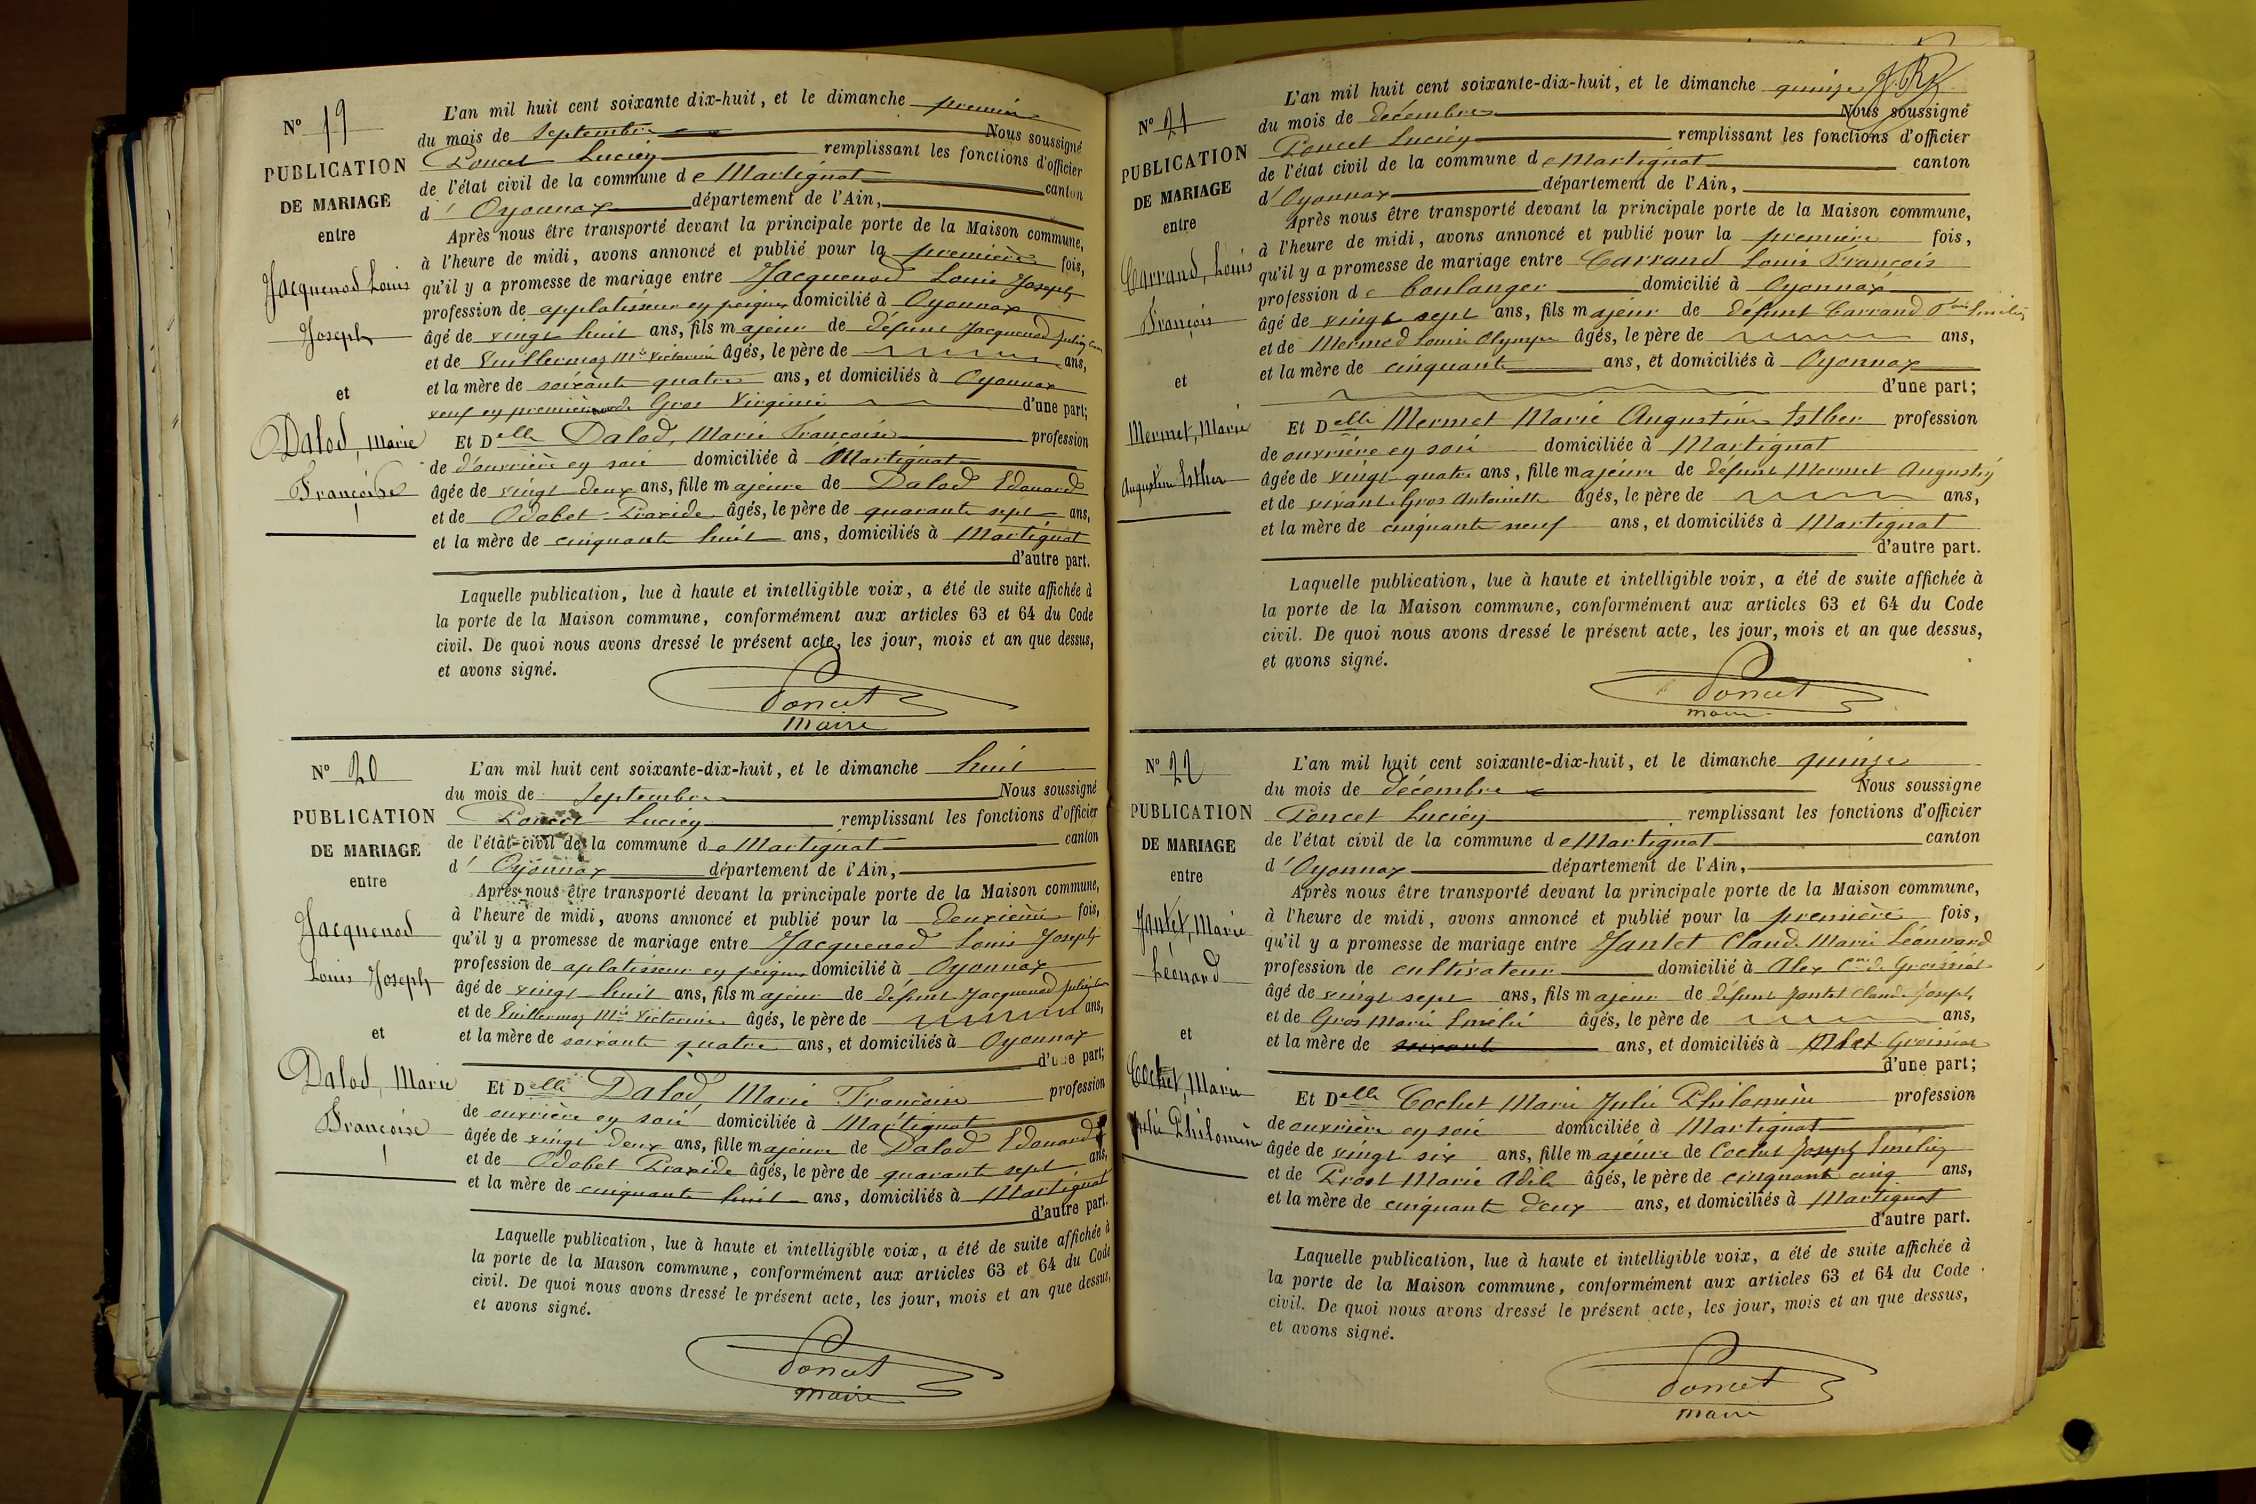 N° 19
PUBLICATION
DE MARIAGE
entre
Jacquenod Louis
Joseph
et
Dalod, Marie
Françoise
L'an mil huit cent soixante dix-huit, et le dimanche premier
du mois de septembre Nous soussigné
Poncet Lucien remplissant les fonctions d'officier
de l'état civil de la commune de Martignat canton
d'Oyonnax département de l'Ain,
Après nous être transporté devant la principale porte de la Maison commune,
à l'heure de midi, avons annoncé et publié pour la première fois,
qu'il y a promesse de mariage entre Jacquenod Louis Joseph
profession de applatisseur en peignes domicilié à Oyonnax
âgé de vingt huit ans, fils majeur de défunt Jacquenod Julien
et de Vuillermoz Mie Victorine âgés, le père de ans,
et la mère de soixante quatre ans, et domiciliés à Oyonnax
veuf en premières de Gros Virginie d'une part;
Et Delle Dalod, Marie Françoise profession
de d'ouvrière en soie domiciliée à Martignat
âgée de vingt deux ans, fille majeure de Dalod Edouard
et de Odobet Praxide âgés, le père de quarante sept ans,
et la mère de cinquante huit ans, domiciliés à Martignat
d'autre part.
Laquelle publication, lue à haute et intelligible voix, a été de suite affichée à
la porte de la Maison commune, conformément aux articles 63 et 64 du Code
civil. De quoi nous avons dressé le présent acte, les jour, mois et an que dessus,
et avons signé.
Poncet
Maire
N° 20
PUBLICATION
DE MARIAGE
entre
Jacquenod
Louis Joseph
et
Dalod, Marie
Françoise
L'an mil huit cent soixante-dix-huit, et le dimanche huit
du mois de septembre Nous soussigné
Poncet Lucien remplissant les fonctions d'officier
de l'état-civil de la commune de Martignat canton
d'Oyonnax département de l'Ain,
Après nous être transporté devant la principale porte de la Maison commune,
à l'heure de midi, avons annoncé et publié pour la deuxième fois,
qu'il y a promesse de mariage entre Jacquenod Louis Joseph
profession de aplatisseur en peignes domicilié à Oyonnax
âgé de vingt huit ans, fils majeur de défunt Jacquenod Julien
et de Vuillermoz Mie Victorine âgés, le père de ans,
et la mère de soixante quatre ans, et domiciliés à Oyonnax
d'une part;
Et Delle Dalod, Marie Françoise profession
de ouvrière en soie domiciliée à Martignat
âgée de vingt deux ans, fille majeure de Dalod Edouard
et de Odobet Praxide âgés, le père de quarante sept ans,
et la mère de cinquante huit ans, domiciliés à Martignat
d'autre part.
Laquelle publication, lue à haute et intelligible voix, a été de suite affichée à
la porte de la Maison commune, conformément aux articles 63 et 64 du Code
civil. De quoi nous avons dressé le présent acte, les jour, mois et an que dessus,
et avons signé.
Poncet
Maire
N° 21
PUBLICATION
DE MARIAGE
entre
Carrand, Louis
François
et
Mermet, Marie
Augustine Esther
L'an mil huit cent soixante-dix-huit, et le dimanche quinze
du mois de décembre Nous soussigné
Poncet Lucien remplissant les fonctions d'officier
de l'état civil de la commune de Martignat canton
d'Oyonnax département de l'Ain,
Après nous être transporté devant la principale porte de la Maison commune,
à l'heure de midi, avons annoncé et publié pour la première fois,
qu'il y a promesse de mariage entre Carrand Louis François
profession de boulanger domicilié à Oyonnax
âgé de vingt sept ans, fils majeur de défunt Carrand
et de Mermet Louise Olympe âgés, le père de ans,
et la mère de cinquante ans, et domiciliés à Oyonnax
d'une part;
Et Delle Mermet Marie Augustine Esther profession
de ouvrière en soie domiciliée à Martignat
âgée de vingt quatre ans, fille majeure de défunt Mermet Augustin
et de vivante Gros Antoinette âgés, le père de ans,
et la mère de cinquante neuf ans, et domiciliés à Martignat
d'autre part.
Laquelle publication, lue à haute et intelligible voix, a été de suite affichée à
la porte de la Maison commune, conformément aux articles 63 et 64 du Code
civil. De quoi nous avons dressé le présent acte, les jour, mois et an que dessus,
et avons signé.
Poncet
Maire
N° 22
PUBLICATION
DE MARIAGE
entre
Jantet, Marie
Léonard
et
Cochet, Marie
Julie Philomène
L'an mil huit cent soixante-dix-huit, et le dimanche quinze
du mois de décembre Nous soussigné
Poncet Lucien remplissant les fonctions d'officier
de l'état civil de la commune de Martignat canton
d'Oyonnax département de l'Ain,
Après nous être transporté devant la principale porte de la Maison commune,
à l'heure de midi, avons annoncé et publié pour la première fois,
qu'il y a promesse de mariage entre Jantet Claude Marie Léonard
profession de cultivateur domicilié à Alex Cne de Groissiat
âgé de vingt sept ans, fils majeur de défunt Jantet Claude Joseph
et de Gros Marie Emélie âgés, le père de ans,
et la mère de ans, et domiciliés à Alex Groissiat
d'une part;
Et Delle Cochet Marie Julie Philomène profession
de ouvrière en soie domiciliée à Martignat
âgée de vingt six ans, fille majeure de Cochet Joseph Emilien
et de Prost Marie Adèle âgés, le père de cinquante cinq ans,
et la mère de cinquante deux ans, et domiciliés à Martignat
d'autre part.
Laquelle publication, lue à haute et intelligible voix, a été de suite affichée à
la porte de la Maison commune, conformément aux articles 63 et 64 du Code
civil. De quoi nous avons dressé le présent acte, les jour, mois et an que dessus,
et avons signé.
Poncet
Maire